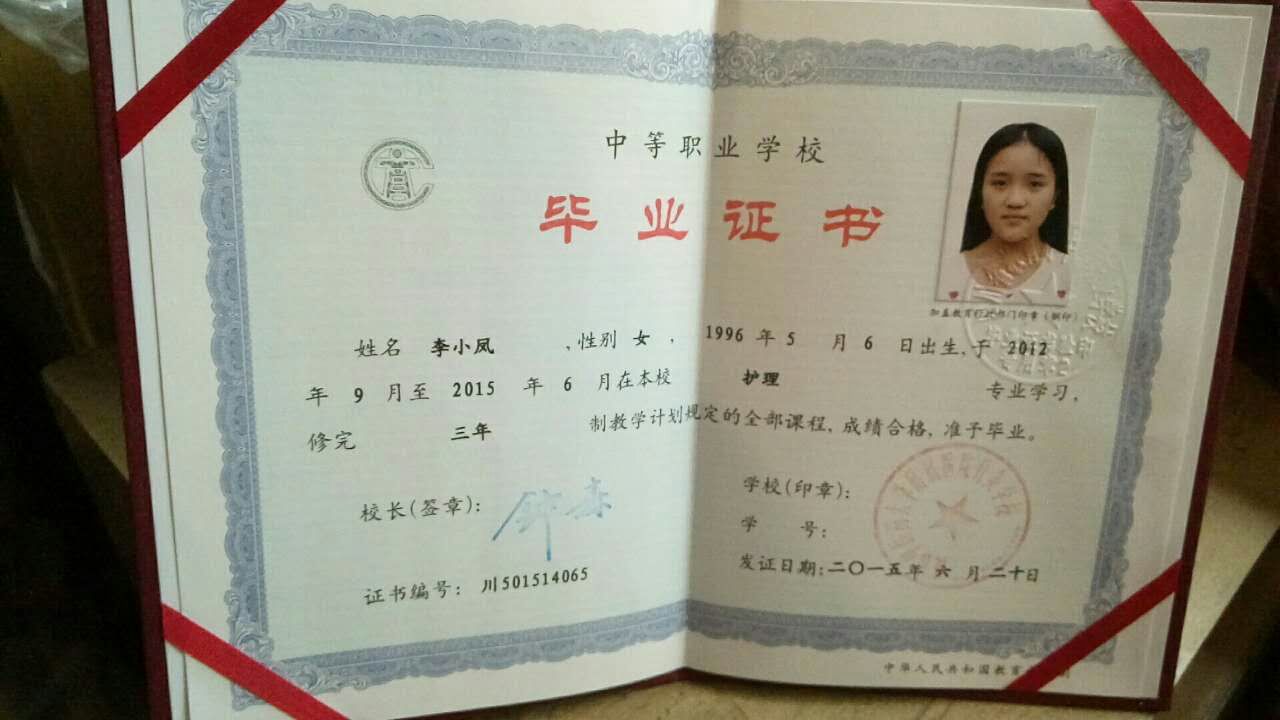 中等职业学校
毕业证书
加盖教育行政部门印章(钢印)
姓名 李小凤 ,性别 女 , 1996 年 5 月 6 日出生,于 2012
年 9 月至 2015 年 6 月在本校 护理 专业学习,
修完 三年 制教学计划规定的全部课程,成绩合格,准予毕业。
校长(签章):
学校(印章):
学 号:
证书编号: 川501514065
发证日期:二〇一五年 六 月 二十日
中华人民共和国教育